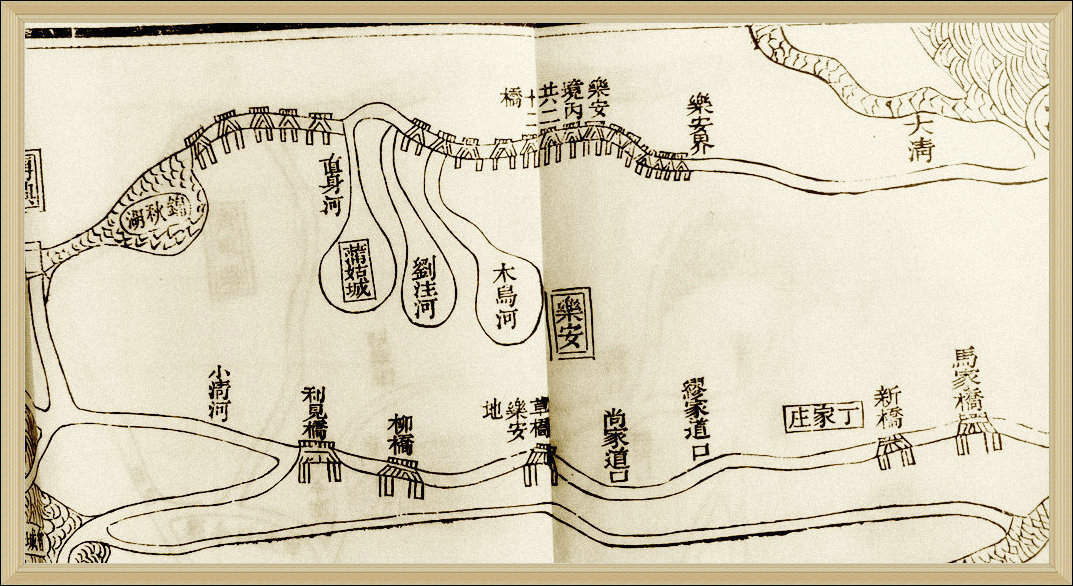 樂安
境內
共二
十二
橋
樂安界
大清
直身河
錦秋湖
蒲姑城
劉注河
木烏河
樂安
小清河
利見橋
柳橋
草橋
樂安
地
尚家道口
繆家道口
丁家庄
新橋
馬家橋